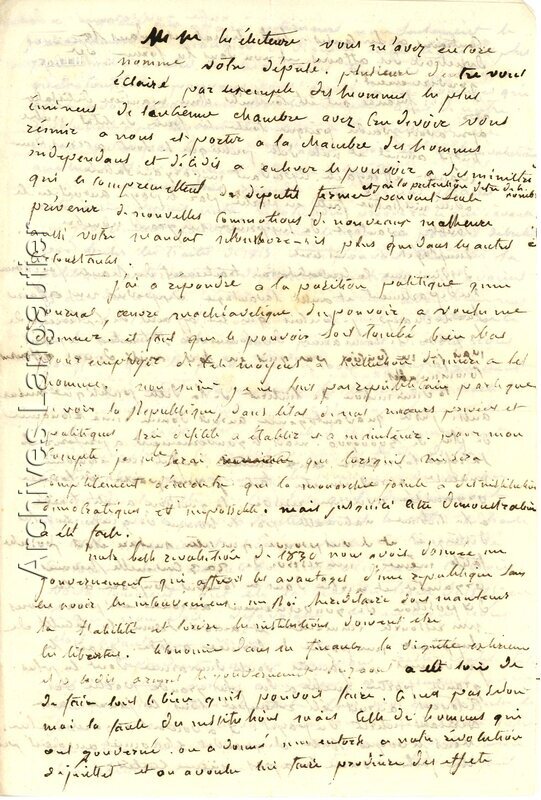 MM les électeurs vous m'avez encore
nommé votre député. plusieurs d'entre vous
éclairé par exemple des hommes les plus
éminens de l'ancienne chambre avez cru devoir vous
réunir a nous et porter a la chambre des hommes
indépendans et décidés a enlever le pouvoir a des ministres
qui le compromettent des députés fermes pouvant seuls
et j'ai la prétention d'etre de le nombre
prévenir de nouvelles commotions de nouveaux malheurs
aussi votre mandat plus que dans les autres
circonstances.
j'ai a repondre a la position politique qu'un
journal, oeuvre machiavelique du pouvoir, a voulu me
donner. il faut que le pouvoir soit tombé bien bas
pour employer de tels moyens
hommes. non je ne suis pas republicain parce que
je vois la Republique, dans l'état de nos moeurs privées et
politiques très difficile a établir et a maintenir. pour mon
compte je ne le serai que lorsqu'il me sera
complètement démontré que la monarchie jointe a des institutions
democratiques est impossible. mais jusqu'ici cette démonstration
a été faite.
notre belle revolution de 1830 nous avoit donné un
gouvernement qui offroit les avantages d'une republique sans
en avoir les inconveniens. un Roi héréditaire doit maintenir
la stabilité et l'ordre les institutions doivent etre
les libertés. l'économie dans les finances la dignité extérieure
le gouvernement a été loin de
de faire tout le bien qu'il pouvoit faire. ce n'est pas selon
moi la faute des institutions mais celle des hommes qui
ont gouverné. on a donné une entorse a notre révolution
de juillet et on a voulu lui faire produire des effets
Archives Langautier